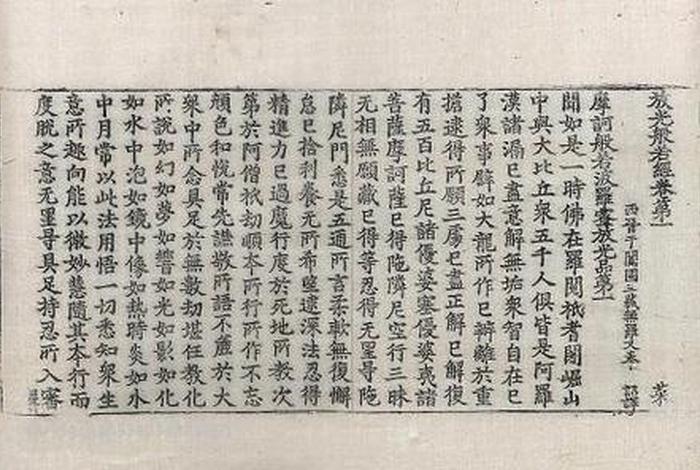 放光般若經卷第一 菜
西晉于闐國三藏無羅叉奉 詔譯
摩訶般若波羅蜜放光品第一
聞如是一時佛在羅閱祇耆闍崛山
中與大比丘衆五千人俱皆是阿羅
漢諸漏已盡意解無垢衆智自在已
了衆事譬如大龍所作已辦離於重
擔逮得所願三處已盡正解已解復
有五百比丘尼諸優婆塞優婆夷諸
菩薩摩訶薩已得陁隣尼空行三昧
无相無願藏已得等忍得无罣㝵陁
隣尼門悉是五通所言柔軟無復懈
怠已捨利養无所希望逮深法忍得
精進力已過魔行度於死地所教次
第於阿僧祇劫順本所行所作不忘
顔色和恱常先謙敬所語不麁於大
衆中所念具足於無數劫堪任教化
所說如幻如夢如響如光如影如化
如水中泡如鏡中像如熱時炎如水
中月常以此法用悟一切悉知衆生
意所趣向能以微妙慧隨其本行而
度脫之意无罣㝵具足持忍所入審